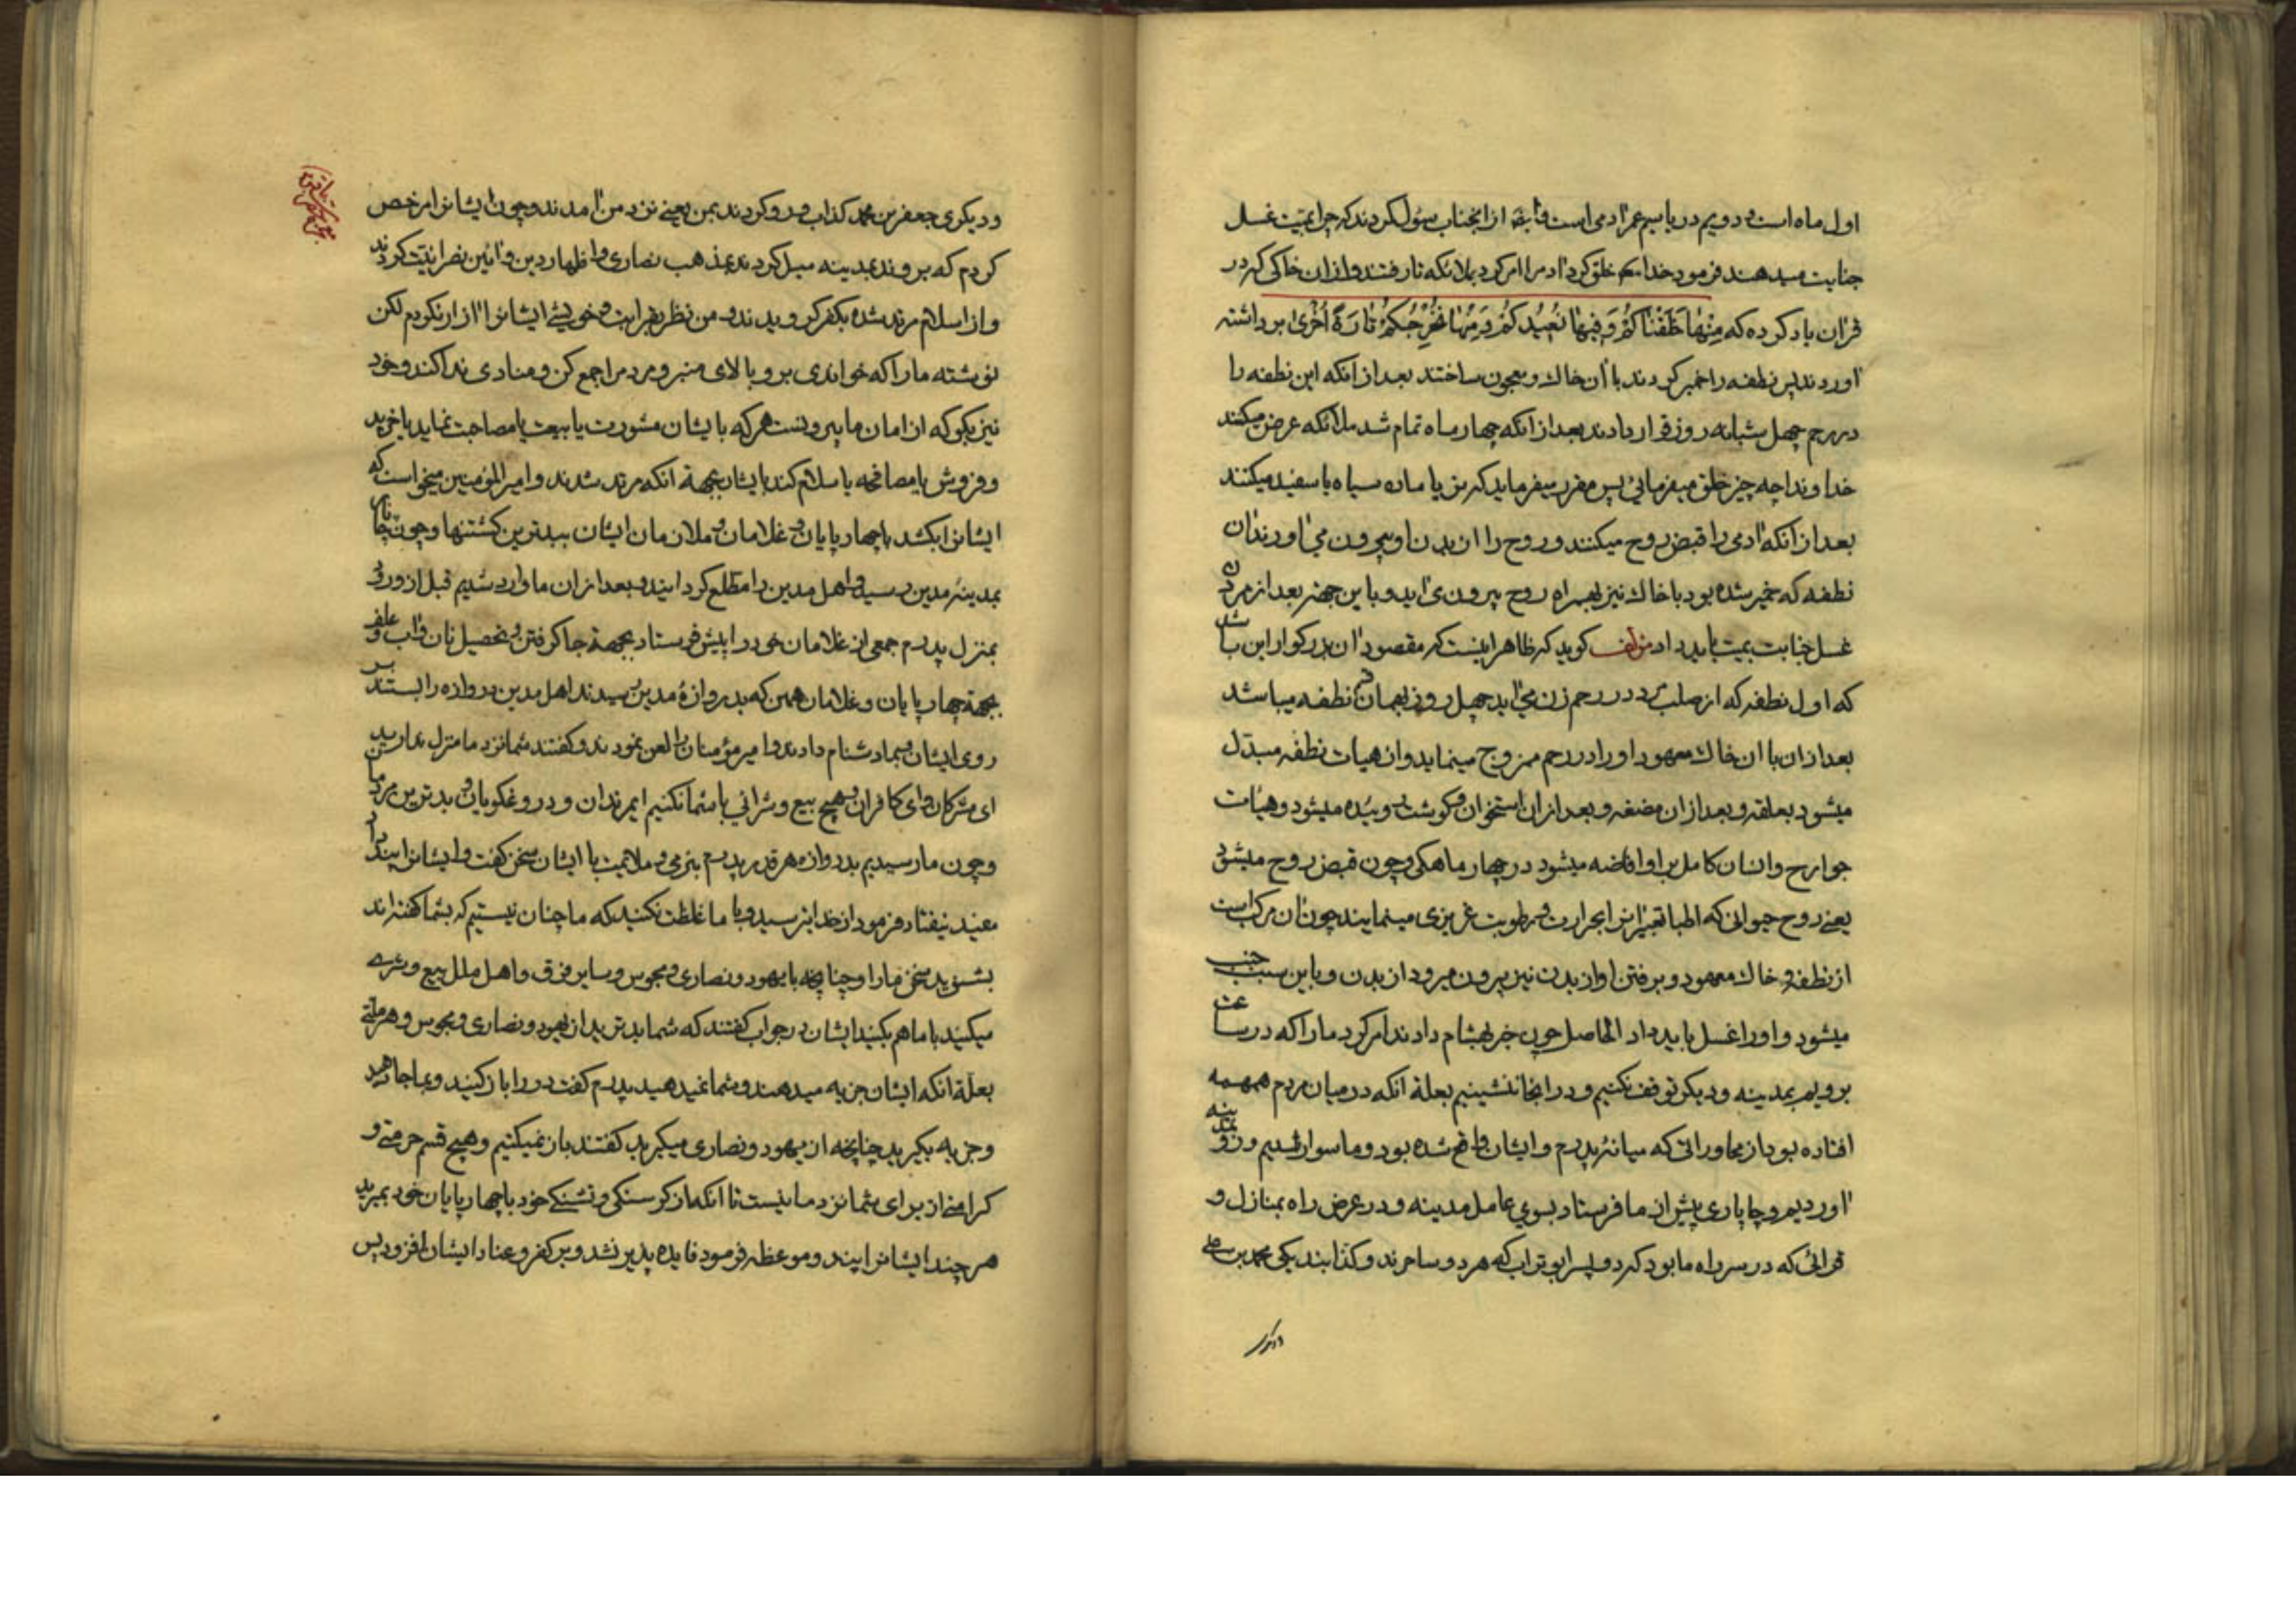 اول ماه است و دویم دریا سیم عمر ادمی است وایضا از انجناب سؤال کردند که چرا بمیت غسل
جنابت میدهند فرمود خدا که خلق کرد ادم را امر کرد بملائکه تا رفتند و ازان خاکی که در
قران یاد کرده که مِنْهٰا خَلَقْنٰاکُمْ وَفِیهٰا نُعِیدُکُمْ وَمِنْهٰا نُخْرِجُکُمْ تٰارَةً اُخْریٰ برداشته
اوردند پس نطفه را خمیر کردند با ان خاك و معجون ساختند بعد از انکه این نطفه را
در رحم چهل شبانه روز قرار دادند بعد از انکه چهار ماه تمام شد ملائکه عرض میکنند
خداوندا چه چیز خلق میفرمائی پس مقرر میفرماید که نر یا ماده سیاه یا سفید میکنند
بعد از انکه ادمی را قبض روح میکنند و روح را از بدن او بیرون می اورند ان
نطفه که خمیر شده بود با خاك نیز بهمراه روح بیرون می اید و باین جهة بعد از مردن
غسل جنابت بمیت باید داد مؤلف کوید که ظاهر اینست که مقصود ان بزرکوار این باشد
که اول نطفه که از صلب مرد در رحم زن می اید چهل روز بهمان نطفه میباشد
بعد ازان با ان خاك معهود او را در رحم ممزوج مینماید و از هیات نطفه مبدل
میشود بعلقه و بعد ازان مضغه و بعد ازان استخوان و کوشت روئیده میشود و هیأت
جوارح و انسان کامل بر او افاضه میشود در چهار ماهکی و چون قبض روح میشود
یعنی روح حیوانی که اطبا تعبیر ازان بحرارت و رطوبت غریزی مینمایند چون ان مرکب است
از نطفه و خاك معهود و برفتن او از بدن نیز بیرون میرود از بدن و باین سبب جنب
میشود و او را غسل باید داد الحاصل چون خبر بهشام دادند امر کرد ما را که در ساعت
برویم بمدینه و دیکر توقف نکنیم و در انجا ننشینیم بعلة انکه در میان مردم همهمه
افتاده بود از محاوراتی که میانۀ پدرم و ایشان واقع شده بود و ما سوار شدیم و رو بمدینه
اوردیم و چاپاری پیش از ما فرستاد بسوی عامل مدینه و در عرض راه بمنازل و
قرائی که در سر راه ما بود که دو پسر ابو تراب که هر دو ساحرند و کذابند یکی محمد بن علی
ودیکری
ودیکری جعفر بن محمد کذاب ورو کردند بمن یعنی نزد من امدند و چون ایشانرا مرخص
کردم که بروند بمدینه میل کردند بمذهب نصاری و اظهار دین و ائین نصرانیت کردند
و از اسلام مرتد شده بکفر کرویدند و من نظر بقرابت و خویشی ایشانرا ازار نکردم لکن
نوشته ما را که خواندی برو بالای منبر و مردم را جمع کن و منادی ندا کند و خود
نیز بکو که از امان ما بیرونست هر که با ایشان مشورت یا بیعت یا مصاحبت نماید یا خرید
و فروش یا مصافحه یا سلام کند بایشان بجهة انکه مرتد شدند و امیر المؤمنین میخواست که
ایشانرا بکشد با چهارپایان و غلامان و ملازمان ایشان ببدترین کشتنها و چون چاپار
بمدینۀ مدین رسید و اهل مدین را مطلع کردانید و بعد ازان ما وارد شدیم قبل از ورود
بمنزل پدرم جمعی از غلامان خود را پیش فرستاد بجهة جا کرفتن و تحصیل نان و اب و علف
بجهة چهارپایان و غلامان همین که بدروازۀ مدین رسیدند اهل مدین دروازه را بستند بر
روی ایشان و بما دشنام دادند و امیر مؤمنان را لعن نمودند و کفتند شما نزد ما منزل ندارید
ای مشرکان و ای کافران و هیچ بیع و شرائی با شما نکنیم ای مرتدان و دروغکویان و بدترین مردمان
و چون ما رسیدیم بدروازه هر قدر پدرم بنرمی و ملایمت با ایشان سخن کفت و ایشانرا پند داد
مفید نیفتاد فرمود از خدا بترسید و با ما غلظت نکنید که ما چنان نیستیم که بشما کفته اند
بشنوید سخن ما را و چنانچه با یهود و نصاری و مجوس و سایر فرق و اهل ملل بیع و شری
میکنید با ما هم بکنید ایشان در جواب کفتند که شما بدترید از یهود و نصاری و مجوس و هر ملتی
بعلة انکه ایشان جزیه میدهند و شما نمیدهید پدرم کفت در را باز کنید و بما جا دهید
و جزیه بکیرید چنانچه از یهود و نصاری میکیرید کفتند باز نمیکنیم و هیچ قسم حرمتی و
کرامتی از برای شما نزد ما نیست تا انکه از کرسنکی و تشنکی خود با چهارپایان خود بمیرید
هر چند ایشانرا پند و موعظه فرمود فایده پذیر نشد و بر کفر و عناد ایشان افزود پس